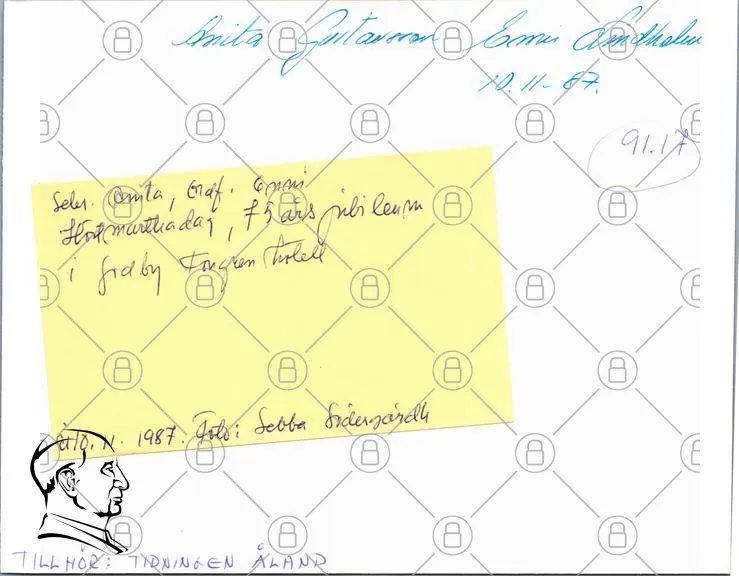 Anita Gustavsson Emmi Lindholm
10.11-87.
91.17
Sekr. Anita, Ordf. Emmi
Höstmarthadag, 75 års jubileum
i Godby Tongren hotell
10.11. 1987. Foto: Sebba Södergårdh
TILLHÖR: TIDNINGEN ÅLAND